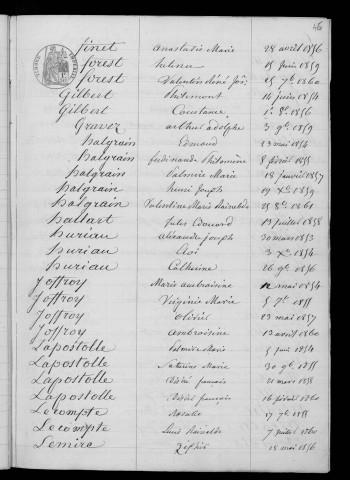 46
finet Anastasie Marie 28 avril 1856
forest helena 15 juin 1859
forest Valentin Réné Jph 25 7e 1860
Gilbert Philémont 14 juin 1854
Gilbert Constance 1r 8e 1856
Gravez arthur adolphe 3 9e 1859
halgrain Edmond 23 mai 1854
halgrain ferdinande Philomène 8 février 1855
halgrain Valmire Marie 18 janvier 1857
halgrain henri Joseph 19 Xe 1859
halgrain Valentine Marie 25 8e 1861
hallart Jules Edouard 13 juillet 1858
huriau alexandre joseph 30 mars 1853
huriau 3 Xe 1854
huriau Catherine 26 9e 1856
Joffroy Marie ambroisine mai 1854
Joffroy Virginie Marie 5 7e 1855
Joffroy Olivier 23 mai 1857
Joffroy ambroisine 13 avril 1860
Lapostolle Palmire Marie 5 juin 1854
Lapostolle Marie 30 9e 1855
Lapostolle Désiré français 21 mars 1858
Lapostolle Désiré français 16 février 1860
Lecompte Rosalie 17 7e 1855
Lecompte 7 juillet 1860
Lemire Zéphir 18 mai 1856